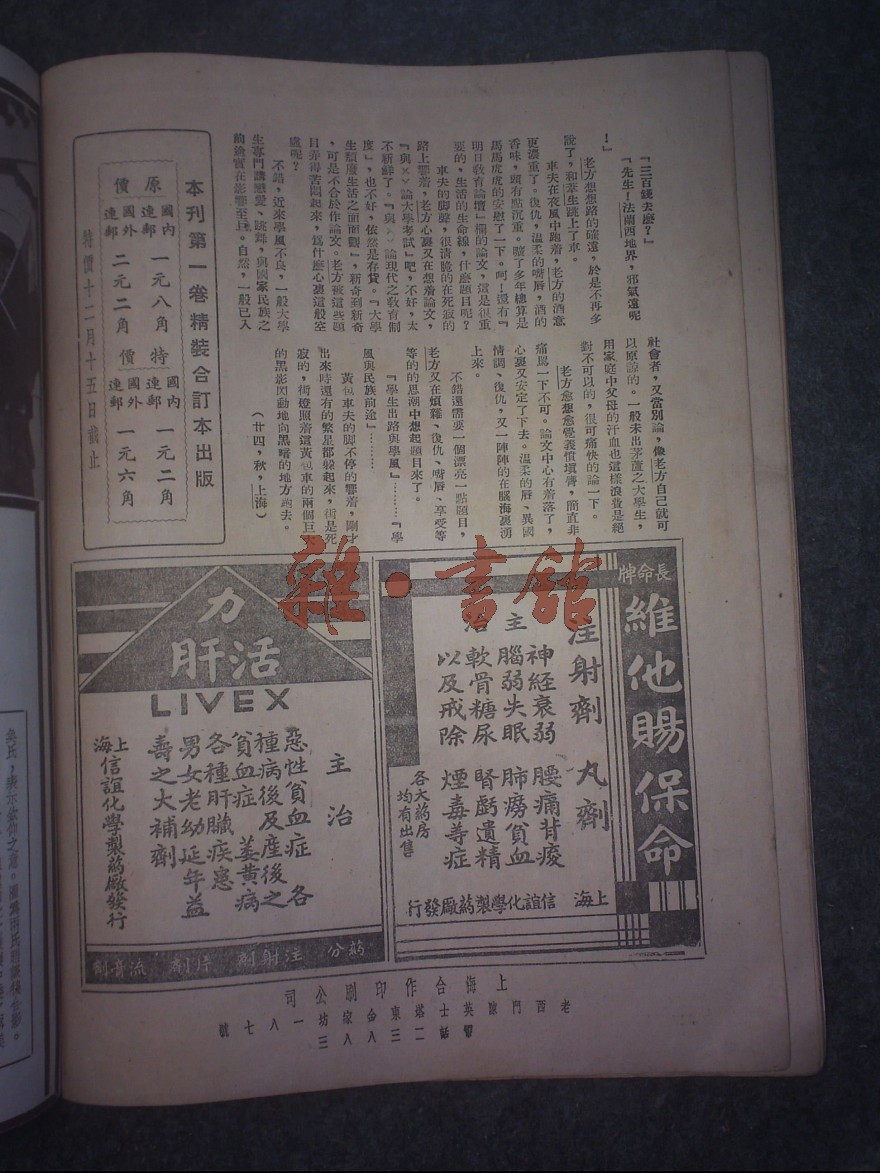 「三百錢去麼?」
「先生!法蘭西地界,邪氣遠呢
!」
老方想想路的確遠,於是不再多
說了,和葉生跳上了車。
車夫在夜風中跑着,老方的酒意
更濃重了。復仇,温柔的嘴唇,酒的
香味,頭有點沉重。墮了多年總算是
馬馬虎虎的安慰了一下。呵!還有『
明日教育論壇』欄的論文,這是很重
要的,生活的生命線,什麼題目呢?
車夫的脚聲,很清脆的在死寂的
路上響着,老方心裏又在想着論文,
『與××論大學考試』吧,不好,太
不新鮮了。『與××論現代之敎育制
度』,也不好,依然是存貨。『大學
生頹廢生活之面面觀』,新奇到新奇
,可是不合於作論文。老方被這些題
目弄得苦悶起來,爲什麼心裏這般空
虛呢?
不錯,近來學風不良,一般大學
生專門講戀愛、跳舞,與國家民族之
前途實在影響至巨。自然,一般已入
社會者,又當別論,像老方自己就可
以原諒的。一般未出茅蘆之大學生,
用家庭中父母的汗血也這樣浪費是絕
對不可以的,很可痛快的論一下。
老方愈想愈覺義憤填膺,簡直非
痛罵一下不可。論文中心有着落了,
心裏又安定了下去。温柔的唇、異國
情調、復仇,又一陣陣的在腦海裏湧
上來。
不錯還需要一個漂亮一點題目,
老方又在煩雜、復仇、嘴唇、享受等
等的的思潮中想起題目來了。
『學生出路與學風』………『學
風與民族前途』………
黃包車夫的脚不停的響着,剛才
出來時還有的繁星都躲起來,街是死
寂的,街燈照着這黃包車的兩個巨大
的黑影閃動地向黑暗的地方跑去。
(廿四,秋,上海)
本刊第一卷精裝合訂本出版
原價
國內連郵 一元八角
國外連郵 二元二角
特價
國內連郵 一元二角
國外連郵 一元六角
特價十二月十五日截止
雜·書館
長命牌
維他賜保命
注射劑 丸劑
主治
神經衰弱 腰痛背痠
腦弱失眠 肺癆貧血
軟骨糖尿 腎虧遺精
以及戒除 煙毒等症
各大藥房
均有出售
上海 信誼化學製葯廠發行
力
活肝
LIVEX
主治
惡性貧血症 各
種病後及產後之
貧血症 萎黃病
各種肝臟疾患
男女老幼延年益
壽之大補劑
上海信誼化學製葯廠發行
葯分 注射劑 片劑 流膏劑
上海合作印刷公司
老西門陳英士塔東金家坊一八七號
電話二三八八三